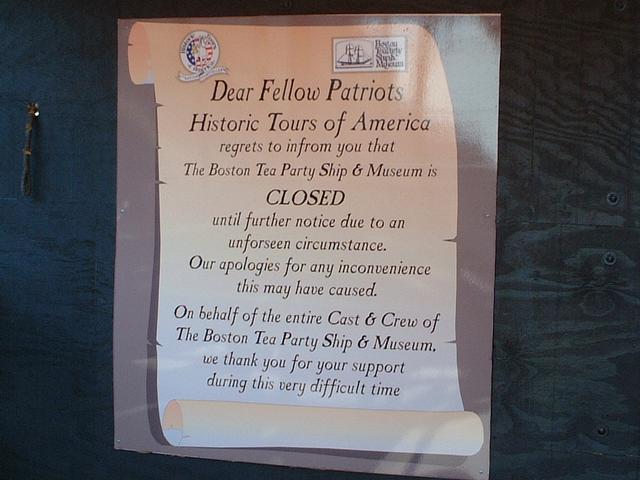 Boston
Tea Party
Ship &
Museum
Dear Fellow Patriots
Historic Tours of America
regrets to infrom you that
The Boston Tea Party Ship & Museum is
CLOSED
until further notice due to an
unforseen circumstance.
Our apologies for any inconvenience
this may have caused.
On behalf of the entire Cast & Crew of
The Boston Tea Party Ship & Museum,
we thank you for your support
during this very difficult time